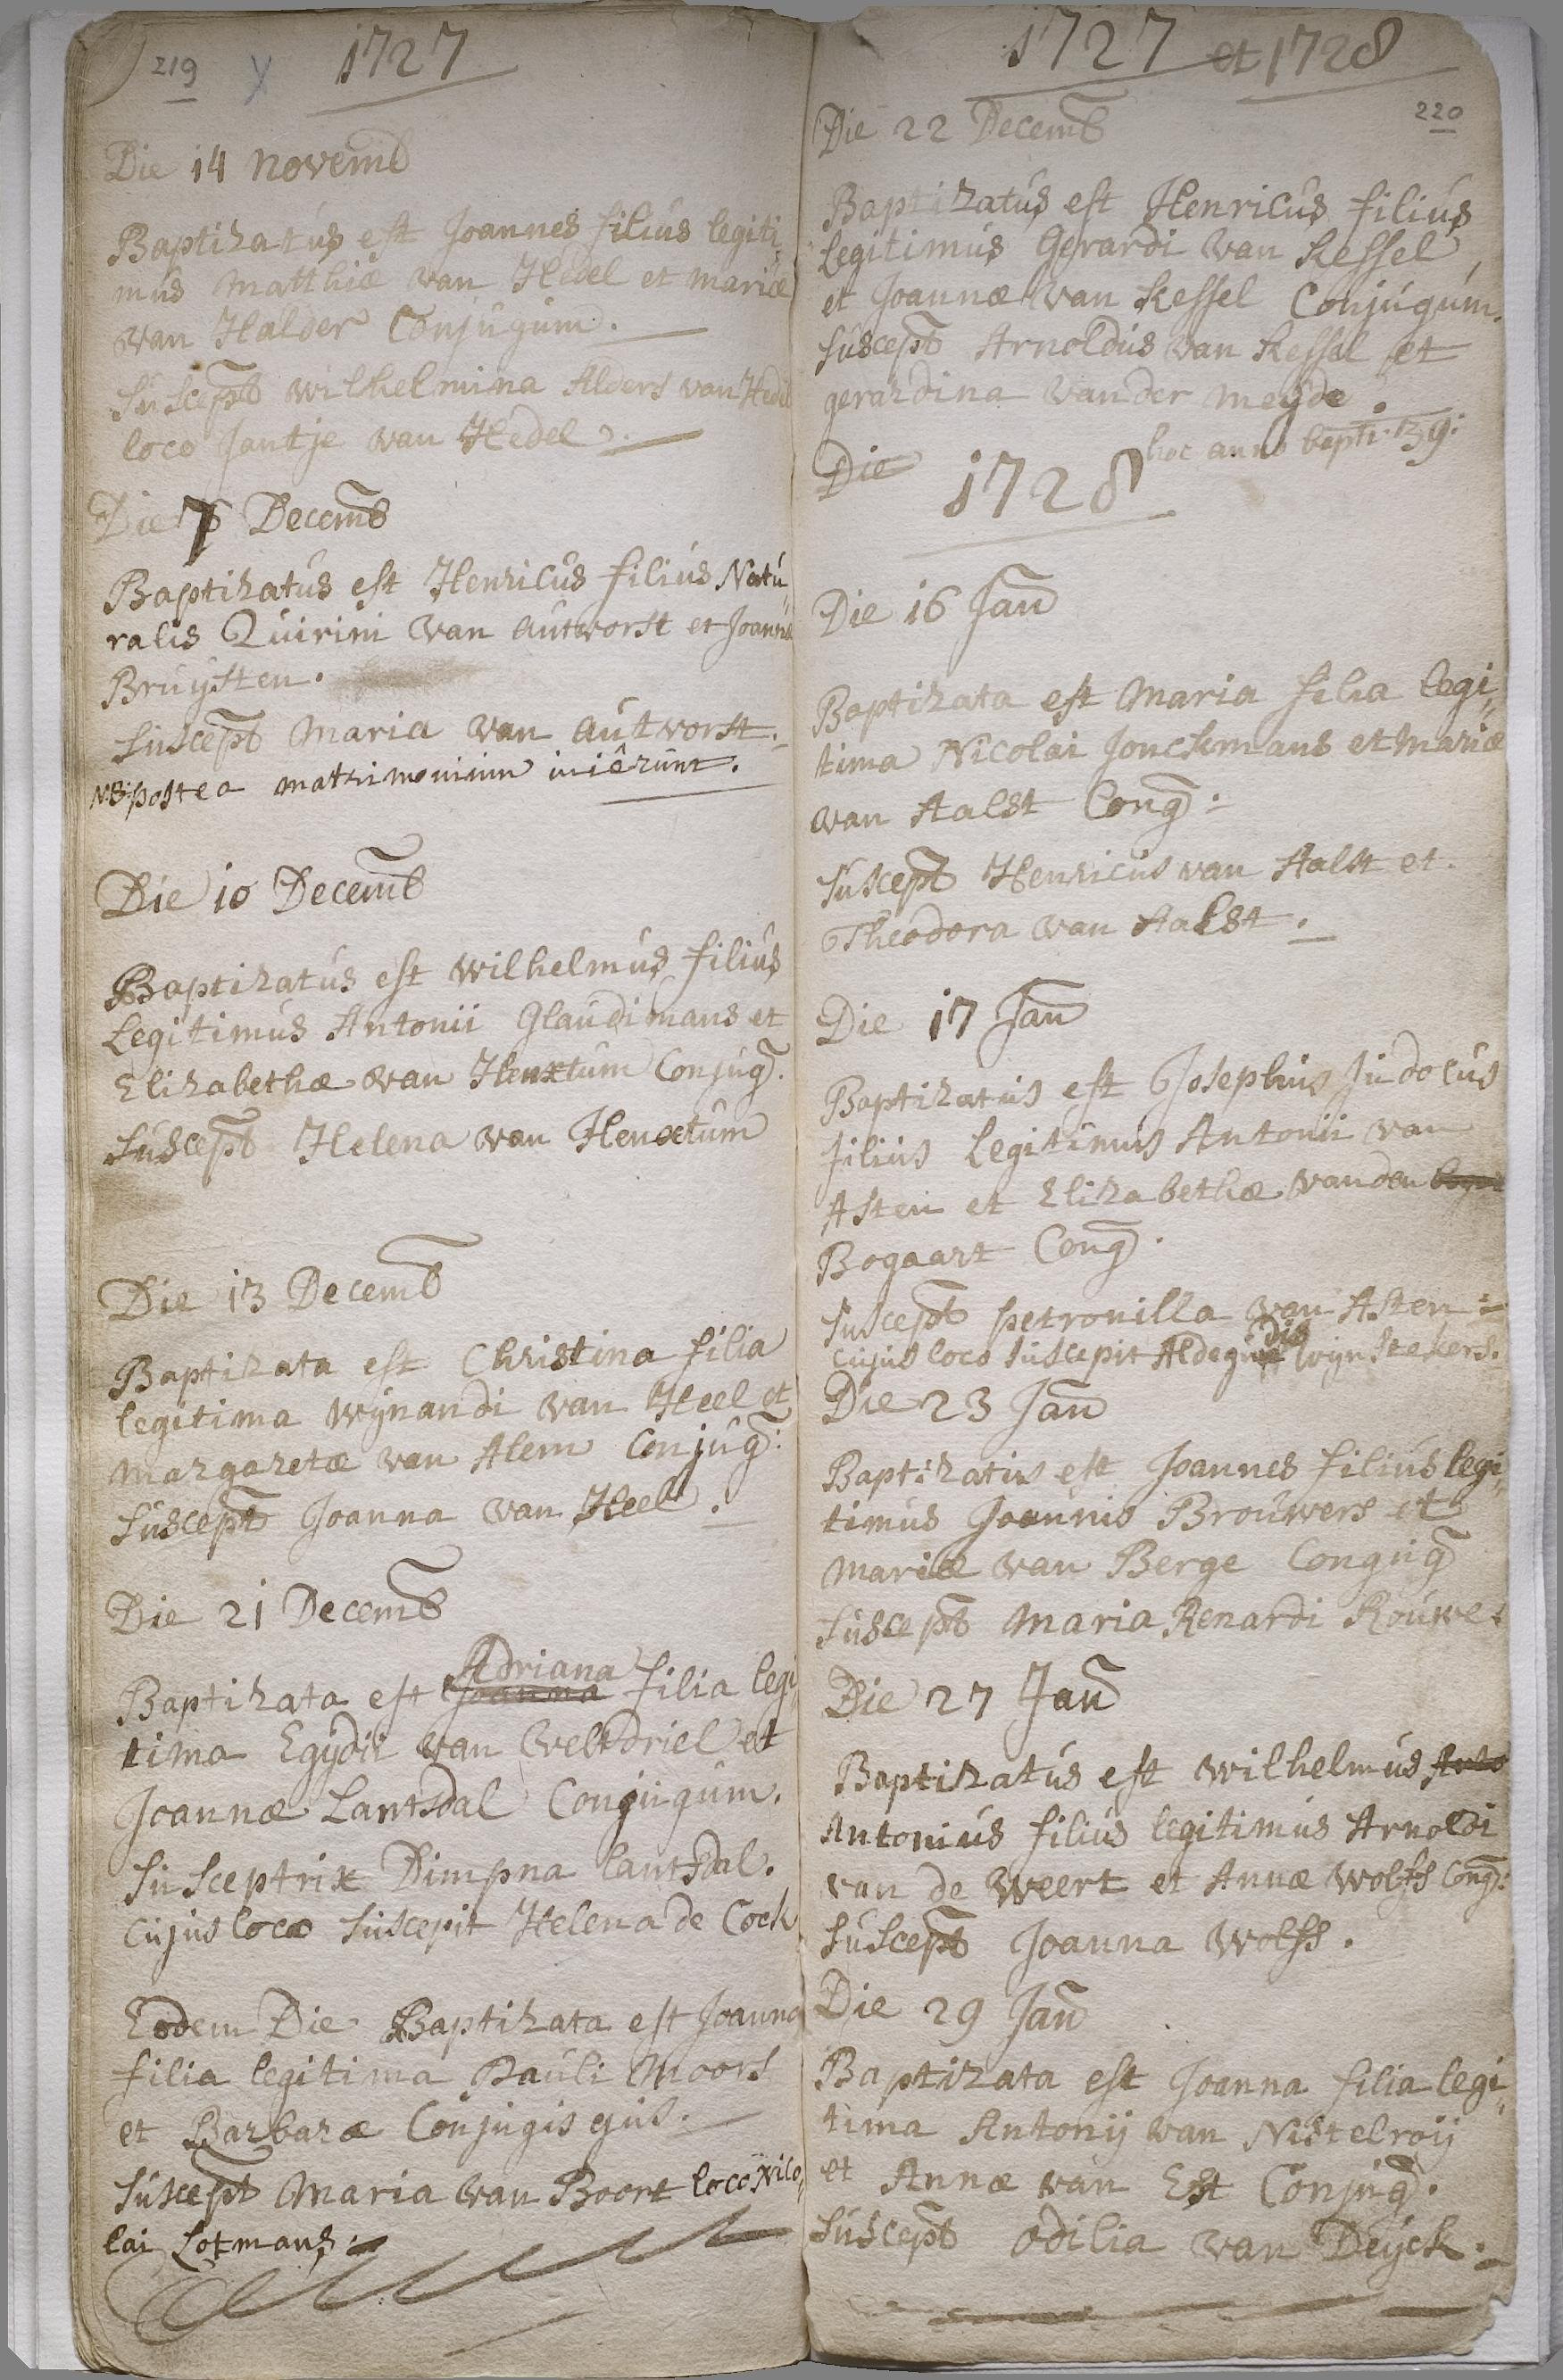 219 1727
Die 14 novemb
Baptizatus est Joannes filius legiti,,
mus Matthiæ van Hedel et mariæ
van Halder Conjugum.
Suscept Wilhelmina Alders van Hedel
loco Jantje van Hedel.
Die 7 Decemb
Baptizatus est Henricus filius Natu,,
ralis Quirini van autvorst et Joannæ
Bruijsten.
Suscept Maria van autvorst.
NB: postea matrimonium iniêrunt.
Die 10 Decemb
Baptizatus est Wilhelmus filius
Legitimus Antonii Glaudimans et
Elizabethæ van Henxtum Conjug.
Suscept Helena van Henxtum
Die 13 Decemb
Baptizata est Christina filia
legitima Wijnandi van Heel et
Margaretæ van Alem Conjug:
Suscept Joanna van Heel.
Die 21 Decemb
Adriana
Baptizata est Joanna filia legi,,
tima Egijdii van Veltdriel et
Joannæ Lantsdal Conjugum.
Susceptrix Dimpna Lantsdal.
Cujus loco suscepit Helena de Cock
Eodem Die Baptizata est Joanna
filia legitima Pauli Moors
et Barbaræ Conjugis ejus.
Suscept Maria van Boort loco Nico,,
lai Lotmans.
1727 et 1728
220
Die 22 Decemb
Baptizatus est Henricus filius
Legitimus Gerardi van Kessel
et Joannæ van Kessel Conjugum.
Suscept Arnoldus van Kessel et
gerardina vander Meijde.
hoc anno bapti. 39:
Die 1728
Die 16 Jan
Baptizata est Maria filia legi,,
tima Nicolai Jonckmans et Mariæ
van Aalst Cong:
Suscept Henricus van Aalst et
Theodora van Aalst.
Die 17 Jan
Baptizatus est Josephus Judocus
filius Legitimus Antonii van
Asten et Elizabethæ vanden
Bogaart Cong.
Suscept petronilla van Asten
dis
Cujus loco suscepit Aldegun Wijnstekers.
Die 23 Jan
Baptizatus est Joannes filius legi,,
timus Joannis Brouwers et
Mariæ van Berge Congug
Suscept Maria Renardi Rouwe.
Die 27 Jan
Baptizatus est Wilhelmus Anto
Antonius filius legitimus Arnoldi
van de Weert et Annæ Wolfs Cong:
Suscept Joanna Wolfs.
Die 29 Jan
Baptizata est Joanna filia legi,,
tima Antonij van Nistelroij
et Annæ van Est Conjug.
Suscept Odilia van Deijck.